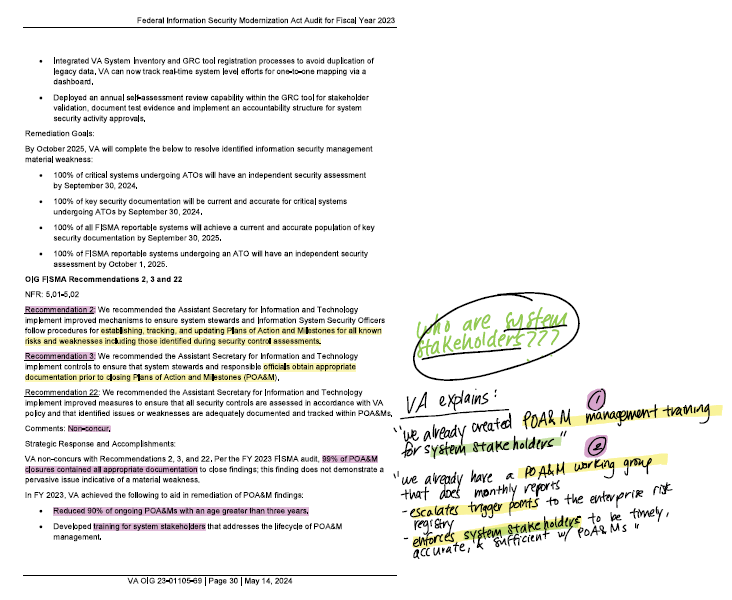 Federal Information Security Modernization Act Audit for Fiscal Year 2023
• Integrated VA System Inventory and GRC tool registration processes to avoid duplication of
legacy data. VA can now track real-time system level efforts for one-to-one mapping via a
dashboard.
• Deployed an annual self-assessment review capability within the GRC tool for stakeholder
validation, document test evidence and implement an accountability structure for system
security activity approvals.
Remediation Goals:
By October 2025, VA will complete the below to resolve identified information security management
material weakness:
• 100% of critical systems undergoing ATOs will have an independent security assessment
by September 30, 2024.
• 100% of key security documentation will be current and accurate for critical systems
undergoing ATOs by September 30, 2024.
• 100% of all FISMA reportable systems will achieve a current and accurate population of key
security documentation by September 30, 2025.
• 100% of FISMA reportable systems undergoing an ATO will have an independent security
assessment by October 1, 2025.
OIG FISMA Recommendations 2, 3 and 22
NFR: 5.01-5.02
Recommendation 2: We recommended the Assistant Secretary for Information and Technology
implement improved mechanisms to ensure system stewards and Information System Security Officers
follow procedures for establishing, tracking, and updating Plans of Action and Milestones for all known
risks and weaknesses including those identified during security control assessments.
Recommendation 3: We recommended the Assistant Secretary for Information and Technology
implement controls to ensure that system stewards and responsible officials obtain appropriate
documentation prior to closing Plans of Action and Milestones (POA&M).
Recommendation 22: We recommended the Assistant Secretary for Information and Technology
implement improved measures to ensure that all security controls are assessed in accordance with VA
policy and that identified issues or weaknesses are adequately documented and tracked within POA&Ms.
Comments: Non-concur.
Strategic Response and Accomplishments:
VA non-concurs with Recommendations 2, 3, and 22. Per the FY 2023 FISMA audit, 99% of POA&M
closures contained all appropriate documentation to close findings; this finding does not demonstrate a
pervasive issue indicative of a material weakness.
In FY 2023, VA achieved the following to aid in remediation of POA&M findings:
• Reduced 90% of ongoing POA&Ms with an age greater than three years.
• Developed training for system stakeholders that addresses the lifecycle of POA&M
management.
VA OIG 23-01105-69 | Page 30 | May 14, 2024
who are system
stakeholders???
VA explains:
1
"we already created POA&M management training
for system stakeholders"
2
"we already have a POA&M working group
that does monthly reports
- escalates trigger points to the enterprise risk
registry
- enforces system stakeholders to be timely,
accurate, & sufficient w/ POA&Ms"